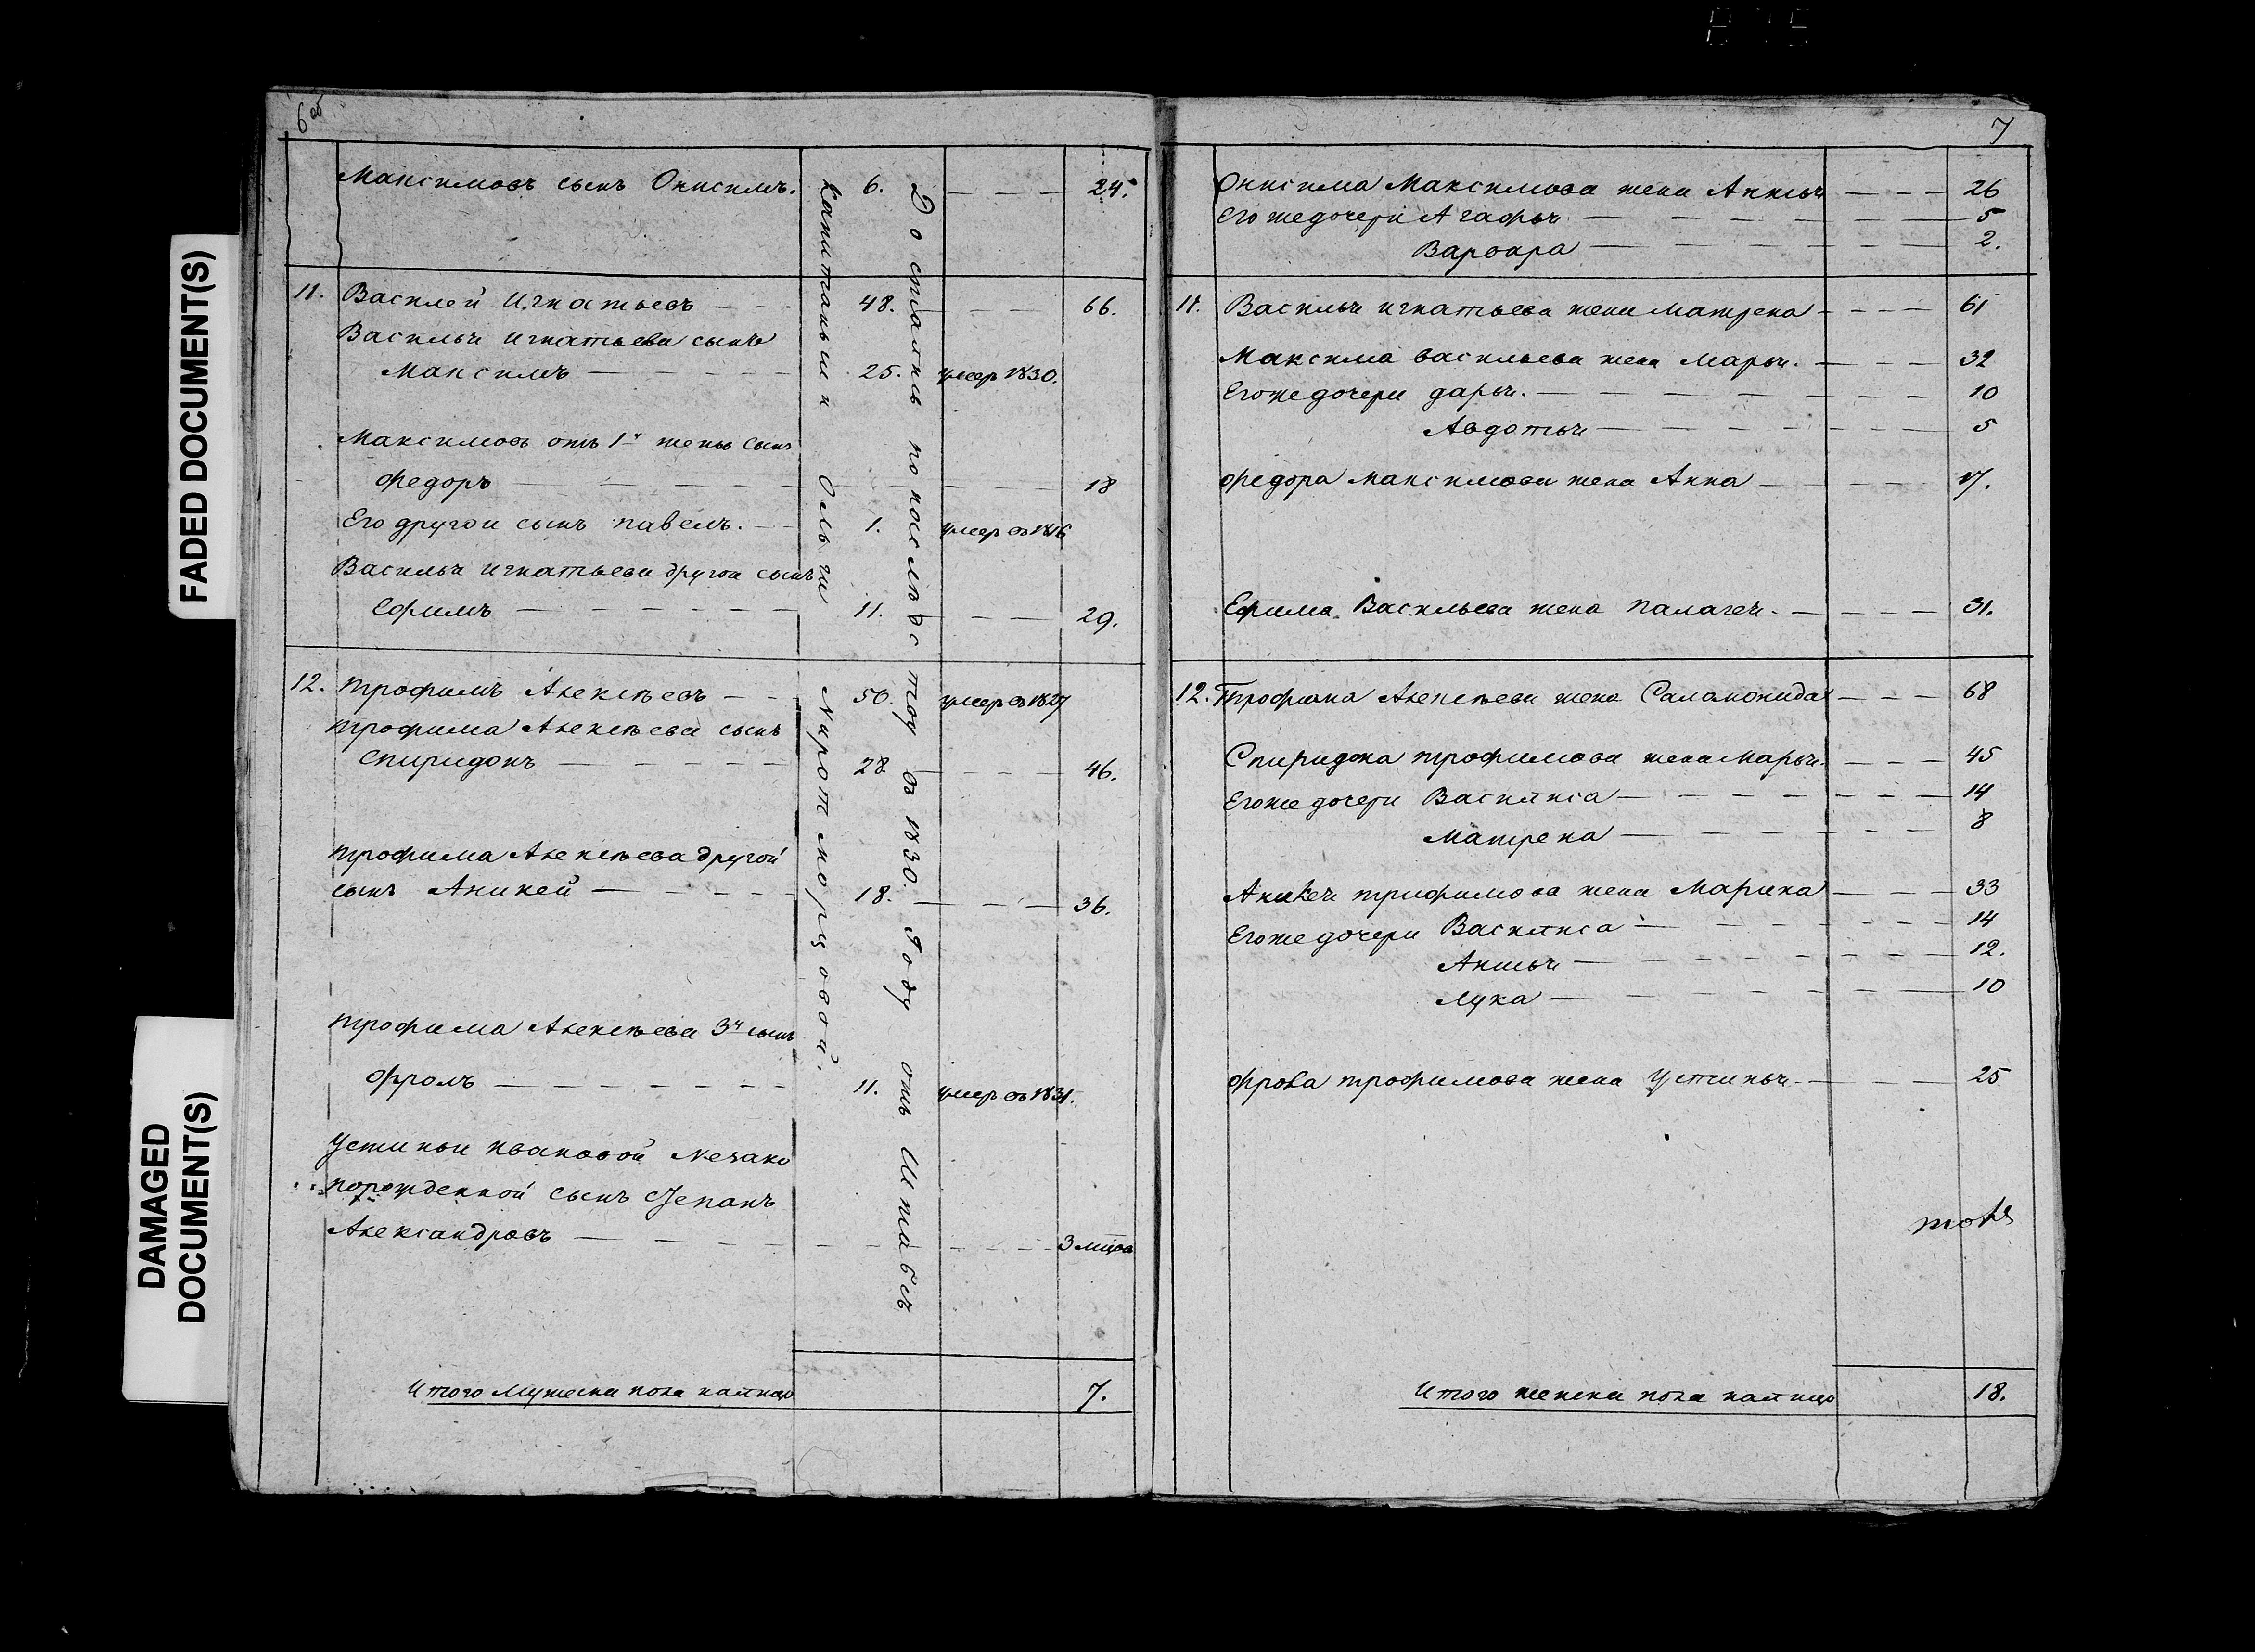 FADED DOCUMENT(S)
DAMAGED
DOCUMENT(S)
6 об
Максимовъ сынъ Онисимъ. 6. — — — 24.
11. Василей Игнатьевъ — — 48. — — — 66.
Васильи Игнатьева сынъ
Максимъ — — — — 25. умер 1830.
Максимовъ отъ 1й жены сынъ
Федоръ — — — — — — — 18
Его другои сынъ павелъ. — — 1. умер въ 1816
Васильи Игнатьева другои сынъ
Ефимъ — — — — — 11. — — — 29.
12. трофимъ Алексѣевъ — — 50. умер въ 1827
трофима Алексѣева сынъ
Спиридонъ — — — — — 28 — — — 46.
трофима Алексѣева другой
сынъ Аникей — — — — 18. — — — 36.
трофима Алексѣева 3й сынъ
Фролъ — — — — — — 11. умер въ 1831.
Устиньи Ивановой Незако
норожденной сынъ Степанъ
Александровъ — — — — — — — — 3 мцоа
Досталис по наслѣдству въ 1830. Году отъ Штабсъ
Капитаньши Ольги Мартморцовой.
Итого Мужеска пола налицо 7.
7
Онисима Максимова жена Аксинья — — — 26
Его же дочери Агафья — — — — — 5
Варвара — — — — — 2.
11. Васильи игнатьева жена Матрена — — — 61
Максима васильева жена Марья. — — — 32
Его же дочери дарья. — — — — — 10
Авдотья — — — — — 5
федора Максимова жена Анна — — — — 17.
Ефима Васильева жена палагея. — — — — 31.
12. Трофима Алексѣева жена Саламонида — — — 68
Спиридона трофимова жена Марья. — — — 45
Его же дочери Василиса — — — — — 14
Матрена — — — — — 8
Аникея трофимова жена Марина — — — 33
Его же дочери Василиса — — — — — 14
Аксинья — — — — — 12.
Лука — — — — — 10
фрола трофимова жена Устинья. — — — 25
Итого женска пола налицо 18.